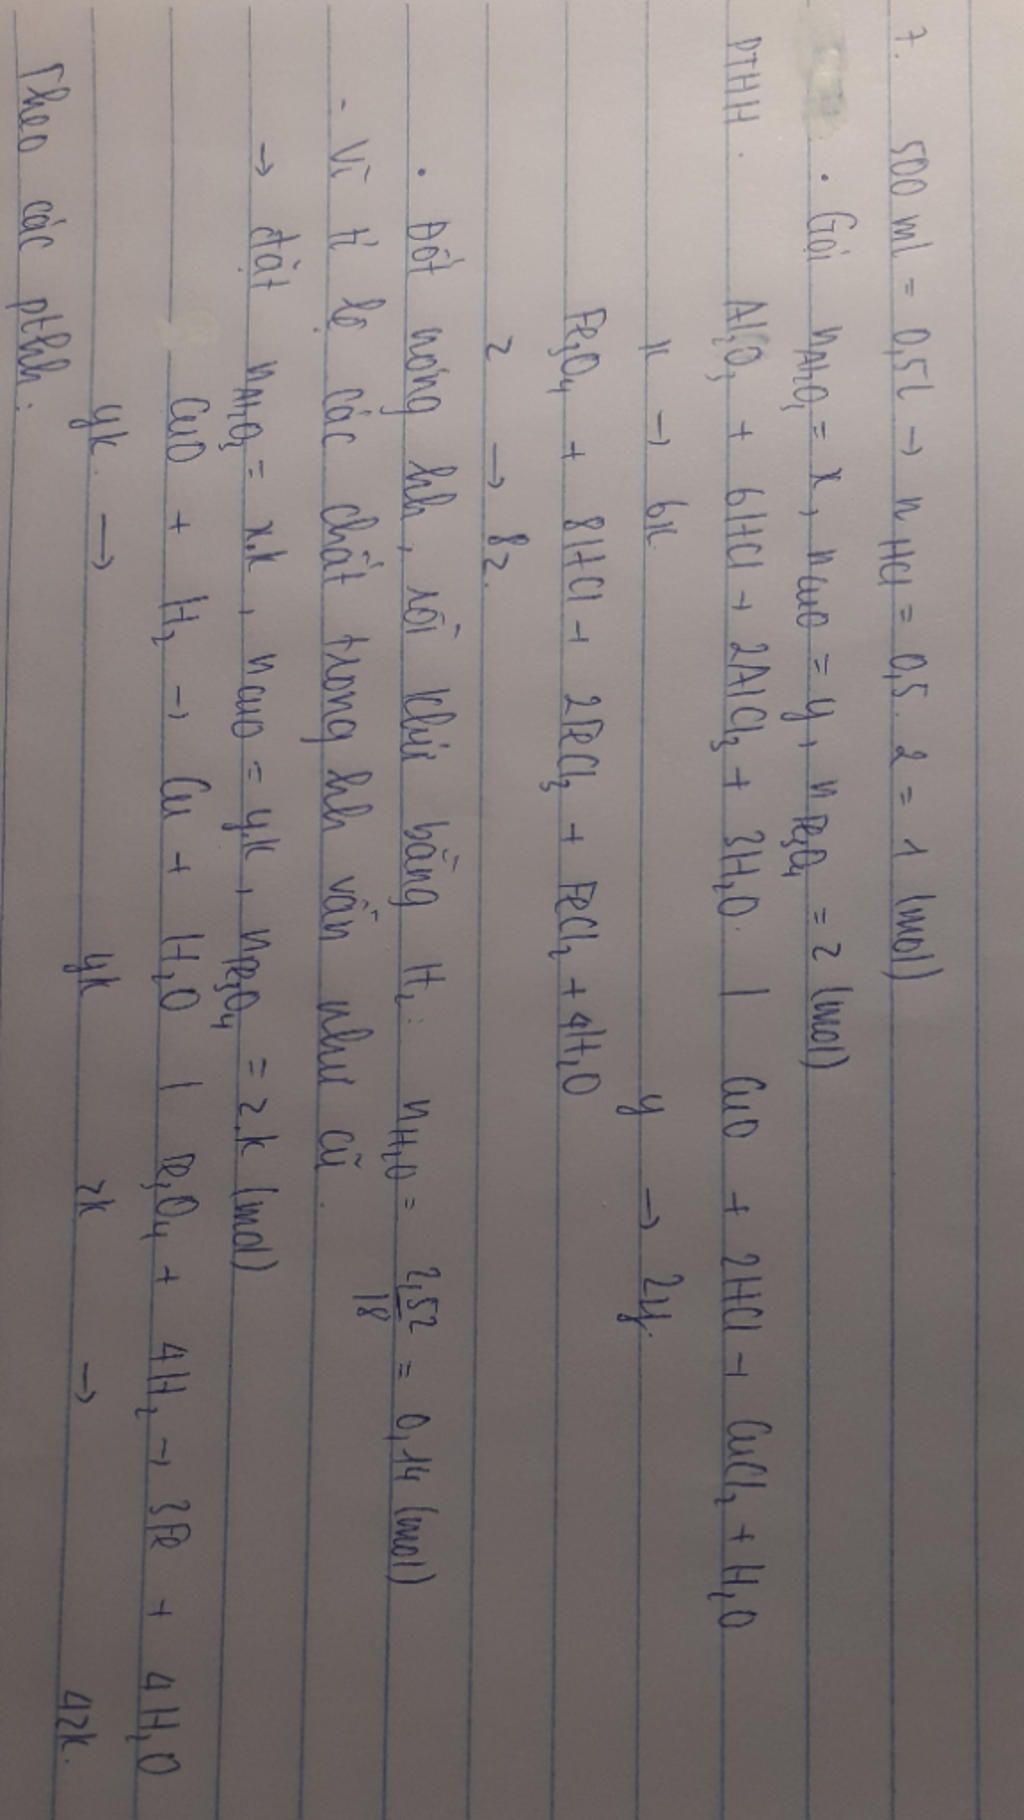 7. 500 ml = 0,5l → n HCl = 0,5. 2 = 1 (mol)
. Gọi nAl₂O₃ = x, nCuO = y, nFe₃O₄ = z (mol)
PTHH. Al₂O₃ + 6HCl → 2AlCl₃ + 3H₂O. | CuO + 2HCl → CuCl₂ + H₂O
x → 6x y → 2y.
Fe₃O₄ + 8HCl → 2FeCl₃ + FeCl₂ + 4H₂O
z → 8z.
. Đốt nóng hh, rồi khử bằng H₂: nH₂O = 2,52/18 = 0,14 (mol)
- Vì tỉ lệ các chất trong hh vẫn như cũ.
→ đặt nAl₂O₃ = x.k, nCuO = y.k, nFe₃O₄ = z.k (mol)
CuO + H₂ → Cu + H₂O | Fe₃O₄ + 4H₂ → 3Fe + 4H₂O
yk. → yk zk → 4zk.
Theo các pthh: